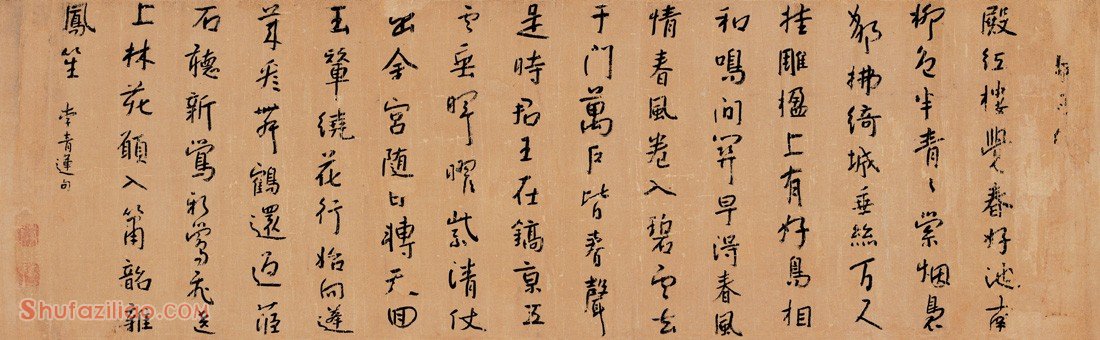 殿紅樓覺春好池南
柳色半青〻縈烟裊
娜拂綺城垂絲百尺
挂雕楹上有好鳥相
和鳴間關早得春風
情春風卷入碧雲去
千門萬戶皆春聲
是時君王在鎬京五
雲垂暉曜紫清仗
出金宮隨日轉天回
玉輦繞花行始向蓬
萊看舞鶴還過茝
若聽新鶯新鶯飛遶
上林苑願入簫韶雜
鳳笙 李青蓮句
Shufaziliao.COM